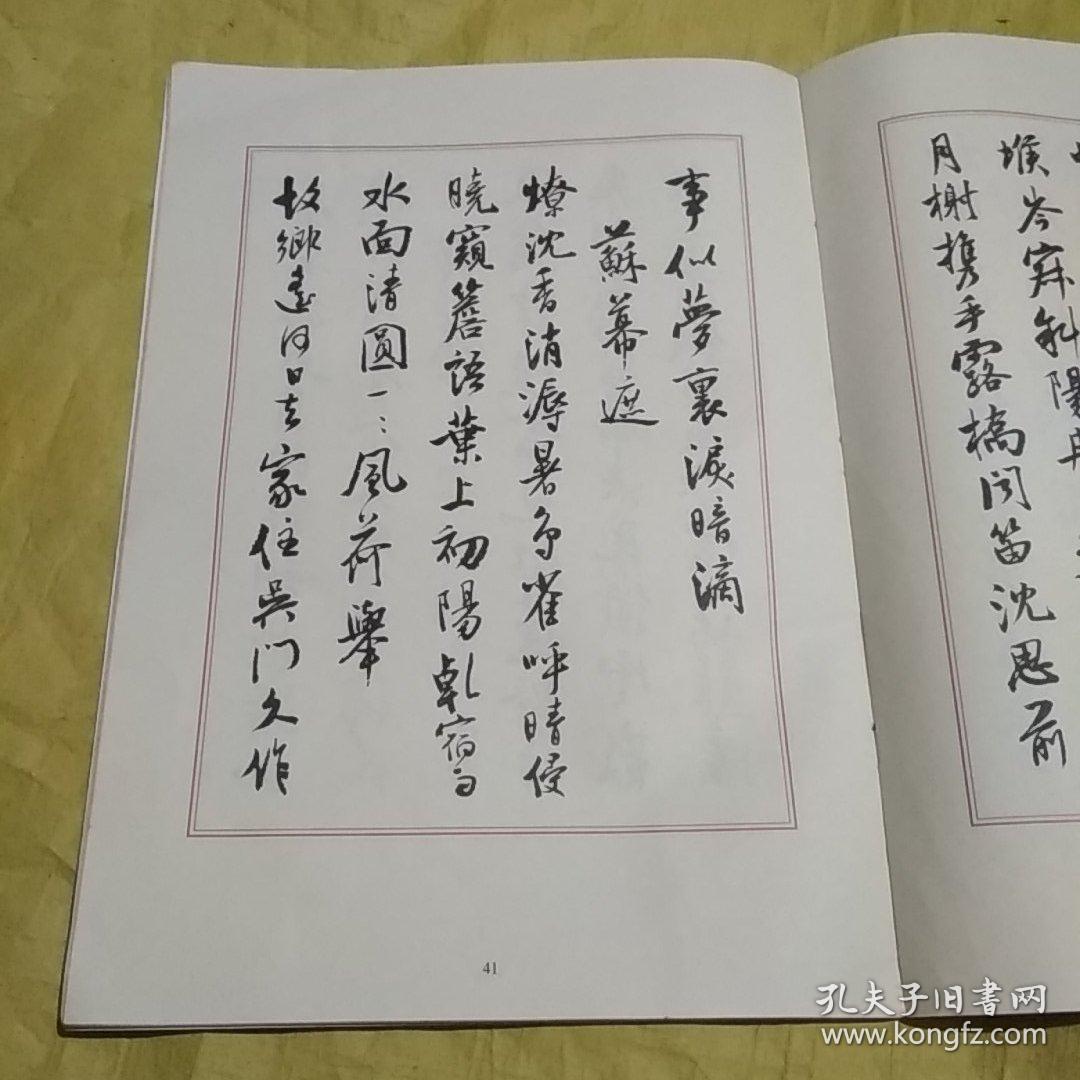 堠岑寂斜陽冉
月榭携手露橋聞笛沈思前
事似夢裏淚暗滴
蘇幕遮
燎沈香消溽暑鳥雀呼晴侵
曉窺簷語葉上初陽乾宿雨
水面清圓一〻風荷舉
故鄉遥何日去家住吳門久作
41
孔夫子旧书网
www.kongfz.com